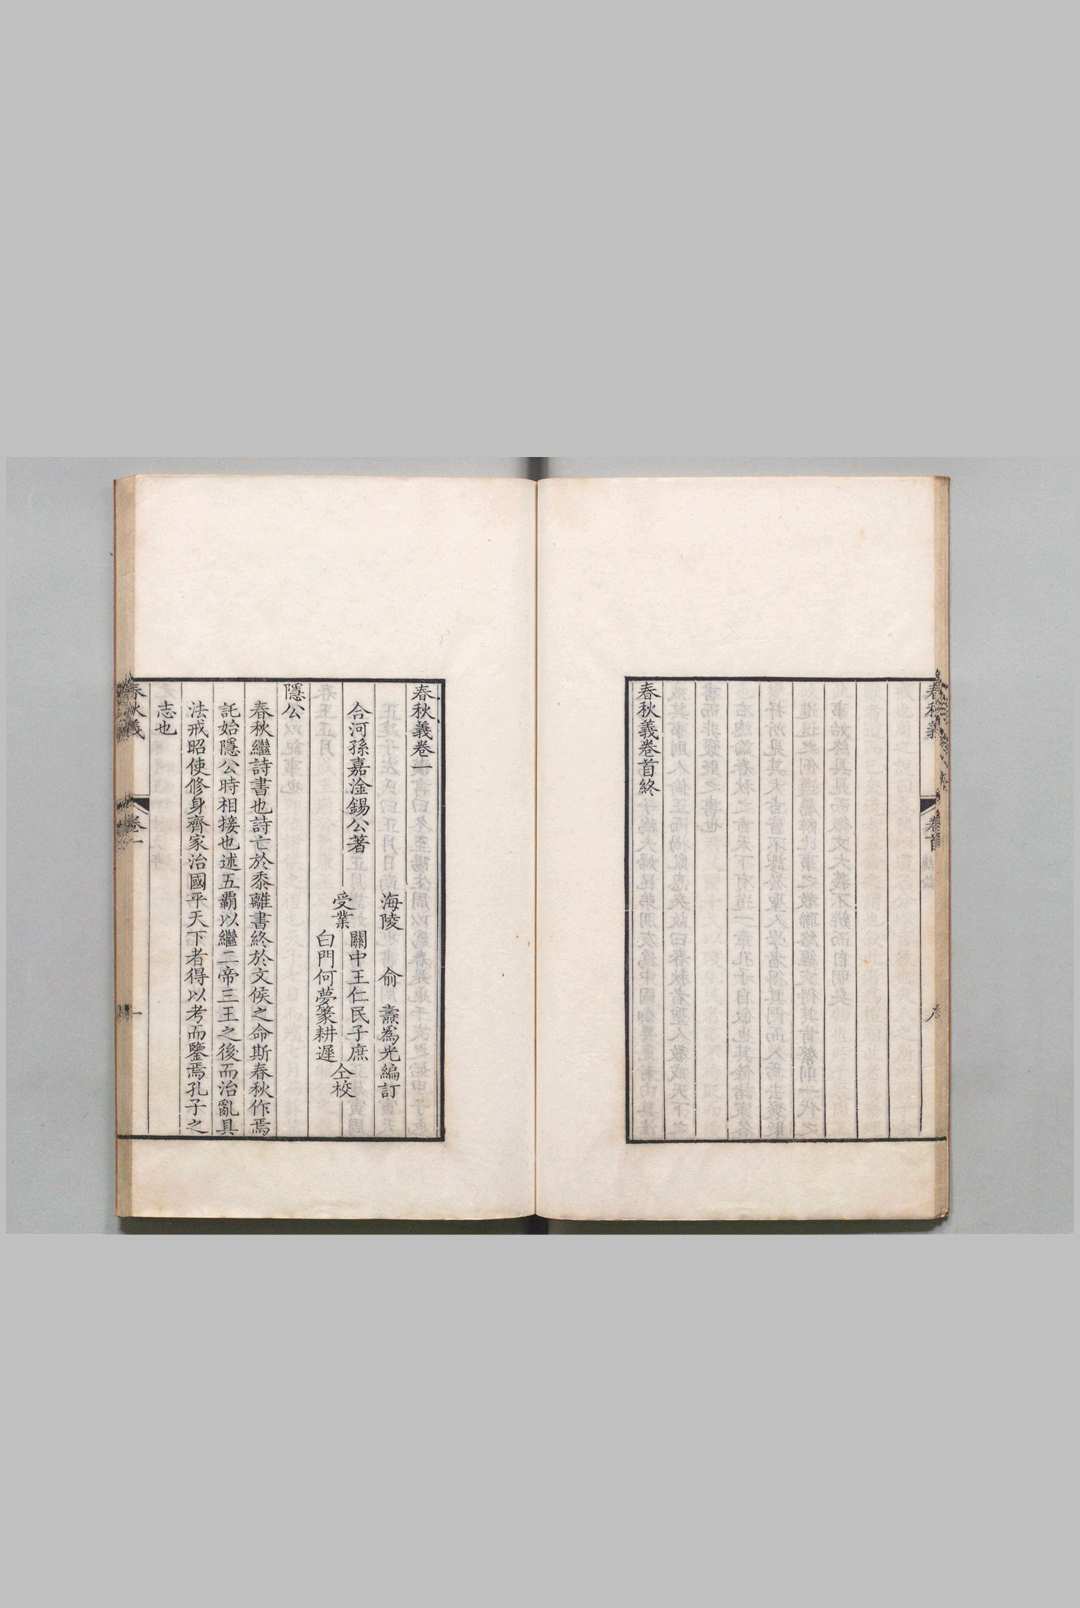 春秋義
卷首
春秋義卷首終
春秋義卷一
合河孫嘉淦錫公著
海陵 俞 燾為光編訂
受業
關中王仁民子庶
白門何夢篆耕遲
仝校
隱公
春秋繼詩書也詩亡於黍離書終於文侯之命斯春秋作焉
託始隱公時相接也述五霸以繼二帝三王之後而治亂具
法戒昭使修身齊家治國平天下者得以考而鑒焉孔子之
志也
春秋義
卷一
一